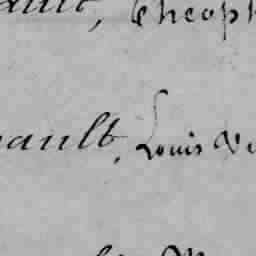 ault, Théoph
eault, Louis Vi